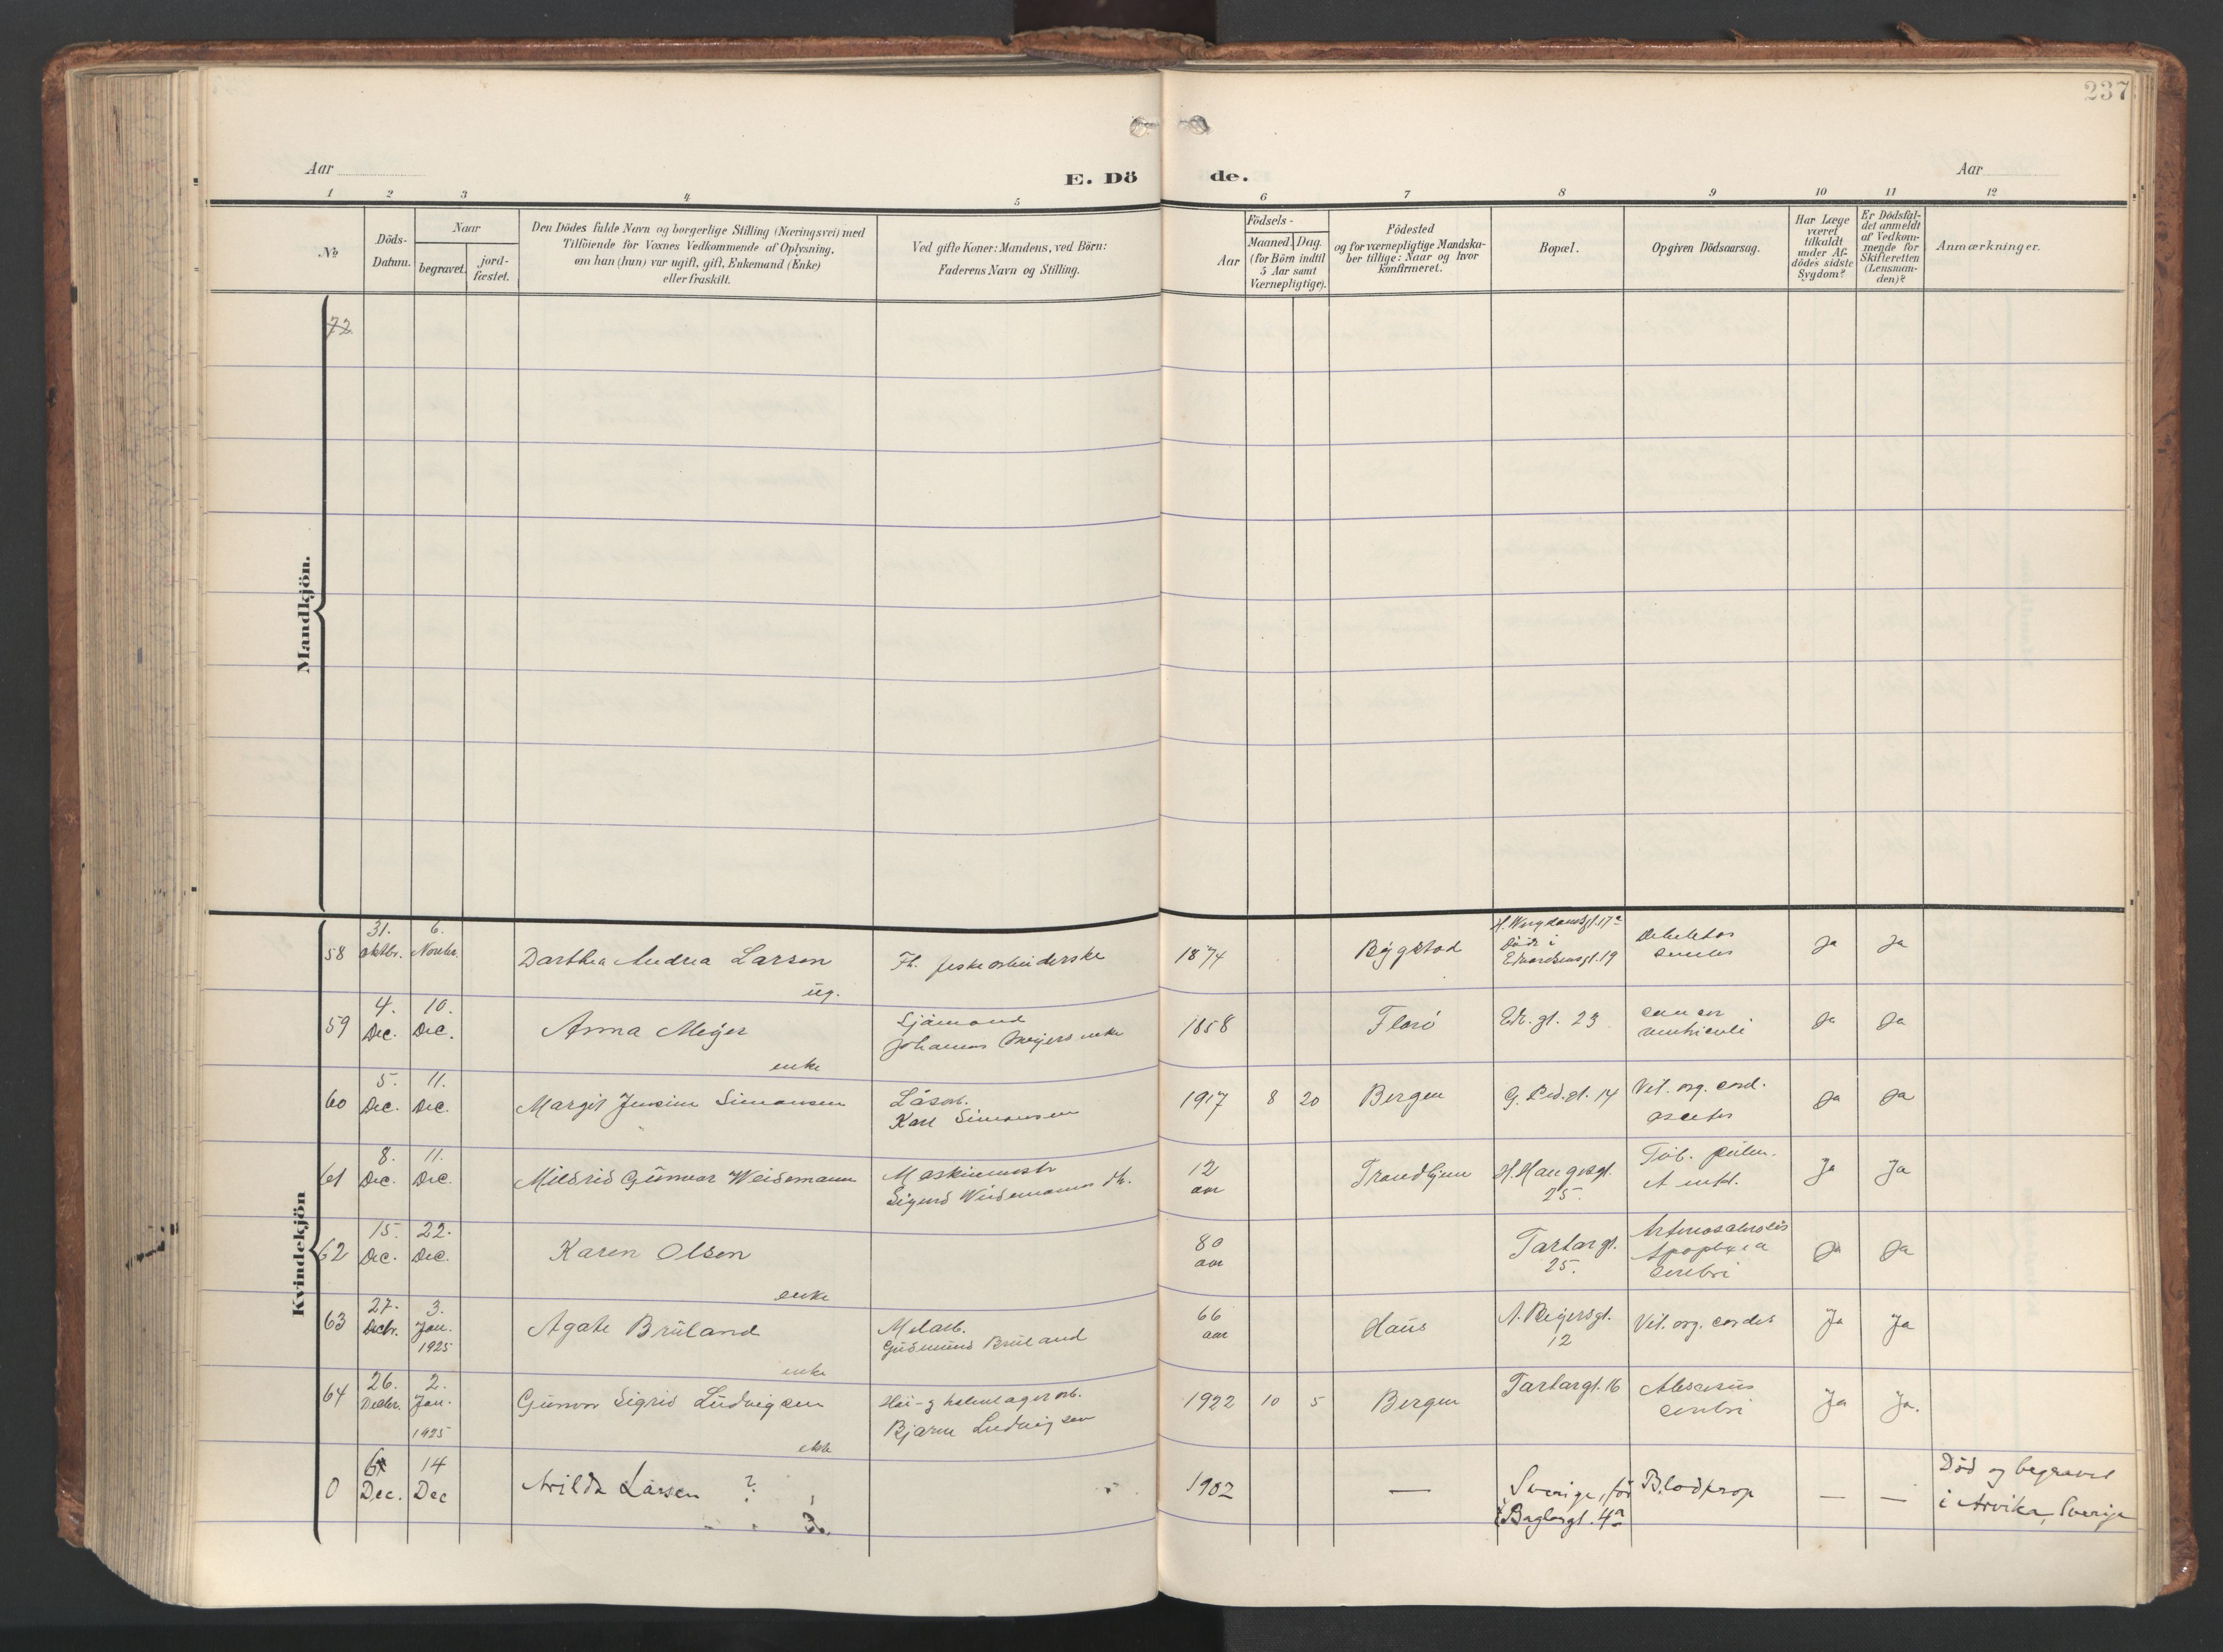 237
Aar
E. Dö de.
Aar
1 2 3 4 5 6 7 8 9 10 11 12
No
Döds-
Datum.
Naar
begravet.
jord-
fæstet.
Den Dödes fulde Navn og borgerlige Stilling (Næringsvei) med
Tilföiende for Voxnes Vedkommende af Oplysning,
om han (hun) var ugift, gift, Enkemand (Enke)
eller fraskilt.
Ved gifte Koner: Mandens, ved Börn:
Faderens Navn og Stilling.
Födsels-
Aar
Maaned. Dag.
(for Börn indtil
5 Aar samt
Værnepligtige).
Födested
og for værnepligtige Mandska-
ber tillige: Naar og hvor
konfirmeret.
Bopæl.
Opgiven Dödsaarsag.
Har Læge
været
tilkaldt
under Af-
dödes sidste
Sygdom?
Er Dödsfal-
det anmeldt
af Vedkom-
mende for
Skifteretten
(Lensman-
den)?
Anmærkninger.
Mandkjön.
72
Kvindekjön
58
31.
oktbr.
6.
Novbr.
Darthea Andrea Larsen
ug.
Fh.
1874
Bygstad
Døde i
19
Ja
Ja
59
4.
Dec.
10.
Dec.
Anna Meyer
enke
Sjömand
Johannes Meyers enke
1858
Florö
Edv. gt. 23
cancer
ventriculi
Ja
Ja
60
5.
Dec.
11.
Dec.
Margit Jensine Simonsen
Karl Simonsen
1917
8
20
Bergen
G. Ped. gt. 14
Vit. org. cord.
Ja
Ja
61
8.
Dec.
11.
Dec.
Mildrid Gunvor Weidemann
Maskinmstr
Sigurd Weidemanns dt.
12
aar
Trondhjem
H. Haugesgt.
25.
Tub. pulm.
et
Ja
Ja
62
15.
Dec.
22.
Dec.
Karen Olsen
enke
80
aar
Tartargt.
25.
Arteriosclerosis
Apoplexia
cerebri
Ja
Ja
63
27.
Decbr.
3.
Jan.
1925
Agate Bruland
enke
Gudmund Bruland
66
aar
Haus
12
Vit. org. cordis
Ja
Ja
64
26.
Decbr.
2.
Jan.
1925
Gunvor Sigrid Ludvigsen
ekte
Bjarne Ludvigsen
1922
10
5
Bergen
Tartargt. 16
Abscessus
cerebri
Ja
Ja.
0
Dec.
14
Dec
Arilda Larsen ?
1902
—
Sverige, för
i Baglergt. 4a
Blodprop
—
—
Död og begravet
i Arvika, Sverige